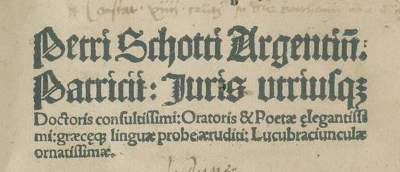 Petri Schotti Argentin̄.
Patricii: Juris vtriusqȝ
Doctoris consultissimi: Oratoris & Poetæ ęlegantissi
mi: græcęqȝ linguæ probe æruditi: Lucubraciunculæ
ornatissimæ.